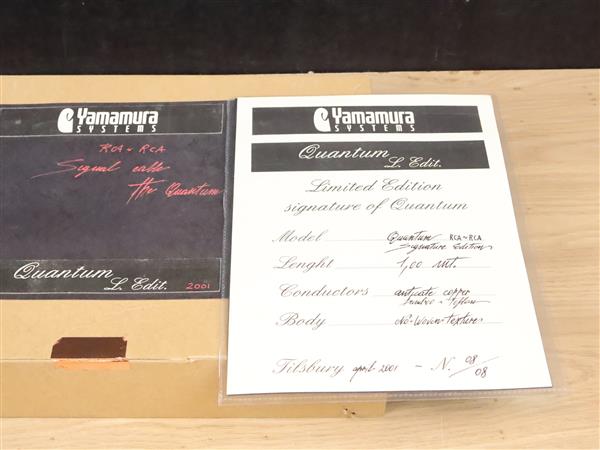 Yamamura
SYSTEMS
RCA ~ RCA
Signal cable
the Quantum
Quantum
L. Edit. 2001
Yamamura
SYSTEMS
Quantum
L. Edit.
Limited Edition
signature of Quantum
Model Quantum RCA~RCA
Signature Edition
Lenght 1,00 mt.
Conductors copper
Body No-Woven-Texture
Tilsbury april-2001 - N. 08/08